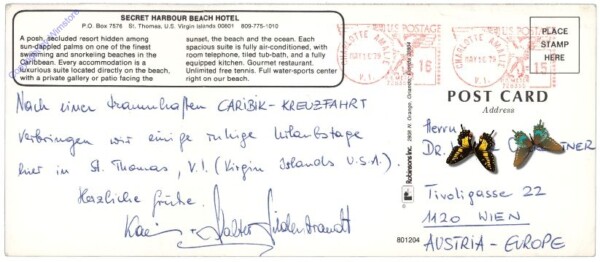 SECRET HARBOUR BEACH HOTEL
P.O. Box 7576 St. Thomas, U.S. Virgin Islands 00801 809-775-1010
A posh, secluded resort hidden among
sun-dappled palms on one of the finest
swimming and snorkeling beaches in the
Caribbean. Every accommodation is a
luxurious suite located directly on the beach,
with a private gallery or patio facing the
sunset, the beach and the ocean. Each
spacious suite is fully air-conditioned, with
room telephone, tiled tub-bath, and a fully
equipped kitchen. Gourmet restaurant.
Unlimited free tennis. Full water-sports center
right on our beach.
Nach einer traumhaften CARIBIK-KREUZFAHRT
verbringen wir einige ruhige Urlaubstage
hier in St. Thomas, V.I. (Virgin Islands U.S.A.).
Herzliche Grüße
Walter
Robinsons Inc.
CHARLOTTE AMALIE
V.I.
U.S. POSTAGE
16
CHARLOTTE AMALIE
V.I.
U.S. POSTAGE
15
PLACE
STAMP
HERE
POST CARD
Address
Herrn
DR.
Tivoligasse 22
1120 WIEN
AUSTRIA - EUROPE
801204